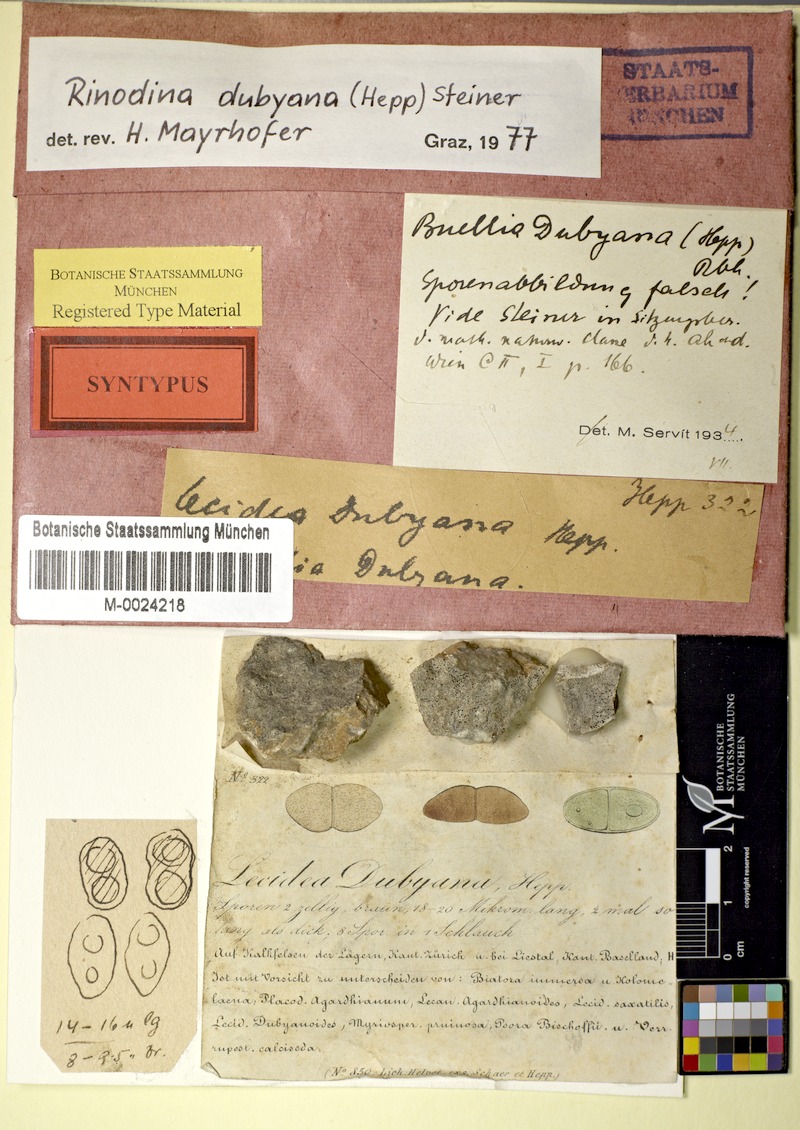 Rinodina dubyana (Hepp) Steiner
det. rev. H. Mayrhofer Graz, 1977
STAATS-
HERBARIUM
MÜNCHEN
BOTANISCHE STAATSSAMMLUNG
MÜNCHEN
Registered Type Material
SYNTYPUS
Buellia Dubyana (Hepp)
Rbh.
Sporenabbildung falsch!
Vide Steiner in Sitzungsber.
d. math. naturw. Classe d. k. Akad.
Wien CII, I p. 166.
Det. M. Servít 1934.
VII.
Hepp 322
Lecidea Dubyana Hepp.
lia Dubyana.
Botanische Staatssammlung München
M-0024218
No. 322
Lecidea Dubyana, Hepp.
Sporen 2 zellig, braun, 18-20 Mikrom. lang, 2 mal so
lang als dick. 8 Spor. in 1 Schlauch
Auf Kalkfelsen der Lägern, Kant. Zürich u. bei Liestal, Kant. Baselland, H
Ist mit Vorsicht zu unterscheiden von: Biatora immersa u. Holome-
laena, Placod. Agardhianum, Lecan. Agardhianoides, Lecid. saxatilis,
Lecid. Dubyanoides, Myriosper. pruinosa, Psora Bischoffii. u. Verr.
rupest. calciseda.
(No 850 Lich. Helvet. exs. Schaer et Hepp.)
14-16 u lg
8-9.5 " br.
BOTANISCHE
STAATSSAMMLUNG
MÜNCHEN
copyright reserved
2
1
0
cm